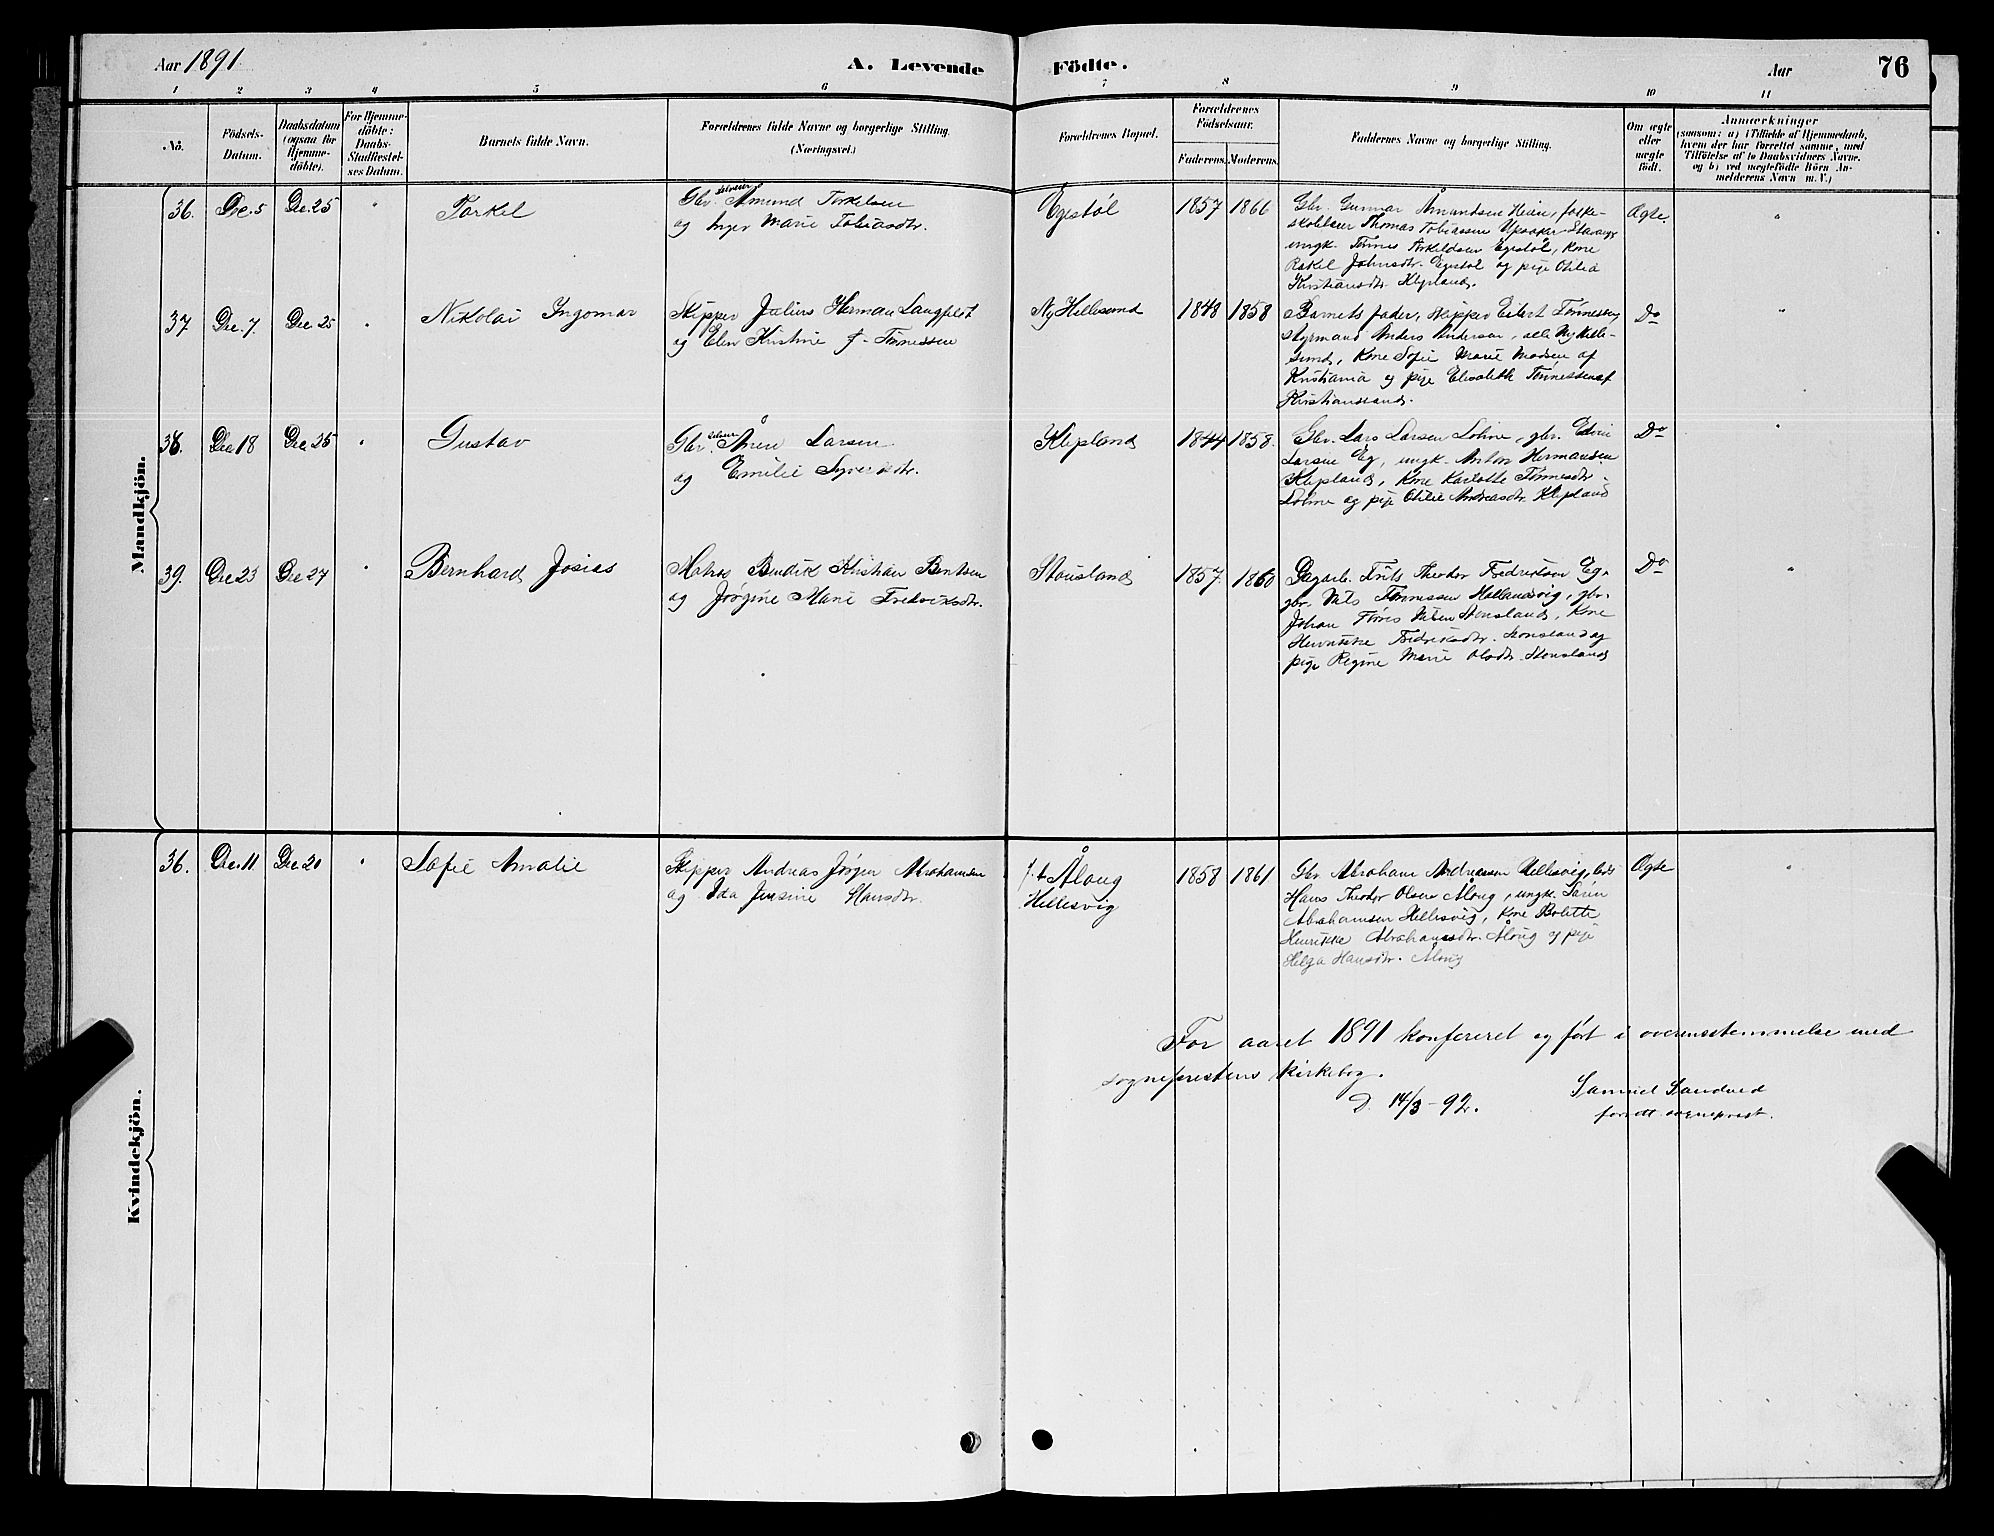 Aar 1891
A. Levende
Födte.
Aar
76
1 2 3 4 5 6 7 8 9 10 11
No.
Födsels-
Datum.
Daabsdatum
(ogsaa for
Hjemme-
döbte).
For Hjemme-
döbte:
Daabs-
Stadfæstel-
ses Datum.
Barnets fulde Navn.
Forældrenes fulde Navne og borgerlige Stilling.
(Næringsvei.)
Forældrenes Bopæl.
Forældrenes
Födselsaar.
Faderens. Moderens.
Faddernes Navne og borgerlige Stilling.
Om ægte
eller
uægte
födt.
Anmærkninger
(saasom: a) i Tilfælde af Hjemmedaab,
hvem der har forrettet samme, med
Tilföielse af to Daabsvidners Navne,
og b) ved uægtefödte Börn An-
melderens Navn m. V.)
Mandkjön.
36. Dec. 5 Dec. 25 " Torkel
Gbr. Selveier Åmund Torkelsen
og Inger Marie Tobiasdtr.
Egestøl 1857 1866
Gbr. Gunnar Åmundsen Heien, folke-
skolelærer Thomas Tobiassen Stavanger
ungk. Tønnes Torkildsen Egestøl, Kone
Rakel Johnsdtr. Egestøl og pige Otilia
Kristiansdtr. Klepland.
Ægte. "
37 Dec. 7. Dec. 25 " Nikolai Ingomar
Skipper Julius Herman Langfeldt
og Elen Kristine f. Tønnessen
Ny Hellesund 1848 1858
Barnets fader, skipper Eilert Tønnessen,
styrmand Anders Andersen, alle Ny Helle-
sund, Kone Sofie Marie Madsen af
Kristiania og pige Elisabeth Tønnessen af
Kristianssand.
Do "
38. Dec. 18 Dec. 25 " Gustav
Gbr. Selveier Åren Larsen
og Emilie Syversdtr.
Klepland 1844 1858.
Gbr. Lars Larsen Lohne, gbr. Edvin
Larsen Eg, ungk. Anton Hermansen
Klepland, Kone Karlotte Tønnesdtr.
Lohne og pige Otilie Andreasdtr. Klepland
Do "
39. Dec. 23 Dec. 27 " Bernhard Josias
Matros Bendik Kristian Bentsen
og Jørgine Marie Fredriksdtr.
Stousland 1857. 1860
Dagarb. Frits Theodor Fredriksen Eg,
gbr. Nils Tønnessen Høllandsvig, gbr.
Johan Tønnes Nilsen Stousland, Kone
Henrikke Fredriksdtr. Stousland og
pige Regine Marie Olsdtr. Stousland
Do
Kvindekjön.
36. Dec. 11 Dec. 20 " Sofie Amalie
Skipper Andreas Jørgen Abrahamsen
og Ida Jensine Hansdtr.
f. t. Åloug
Hellesvig
1858 1861
Gbr. Abraham Andreassen Hellesvig, lods
Hans Theodor Olsen Åloug, ungk. Søren
Abrahamsen Hellesvig, Kone Bolette
Henrikke Abrahamsdtr. Åloug og pige
Helga Hansdtr. Åloug
Ægte "
For aaret 1891 konfereret og ført i overensstemmelse med
sogneprestens kirkebog.
D. 14/3-92. Samuel Sandved
const. sogneprest.